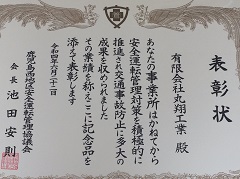 表彰状
有限会社丸翔工業 殿
あなたの事業所はかねてから
安全運転管理対策を積極的に
推進され交通事故防止に多大の
成果を収められました
その業績を称えここに記念品を
添えて表彰します
令和四年六月二十二日
鹿児島西地区安全運転管理協議会
会長 池田安則